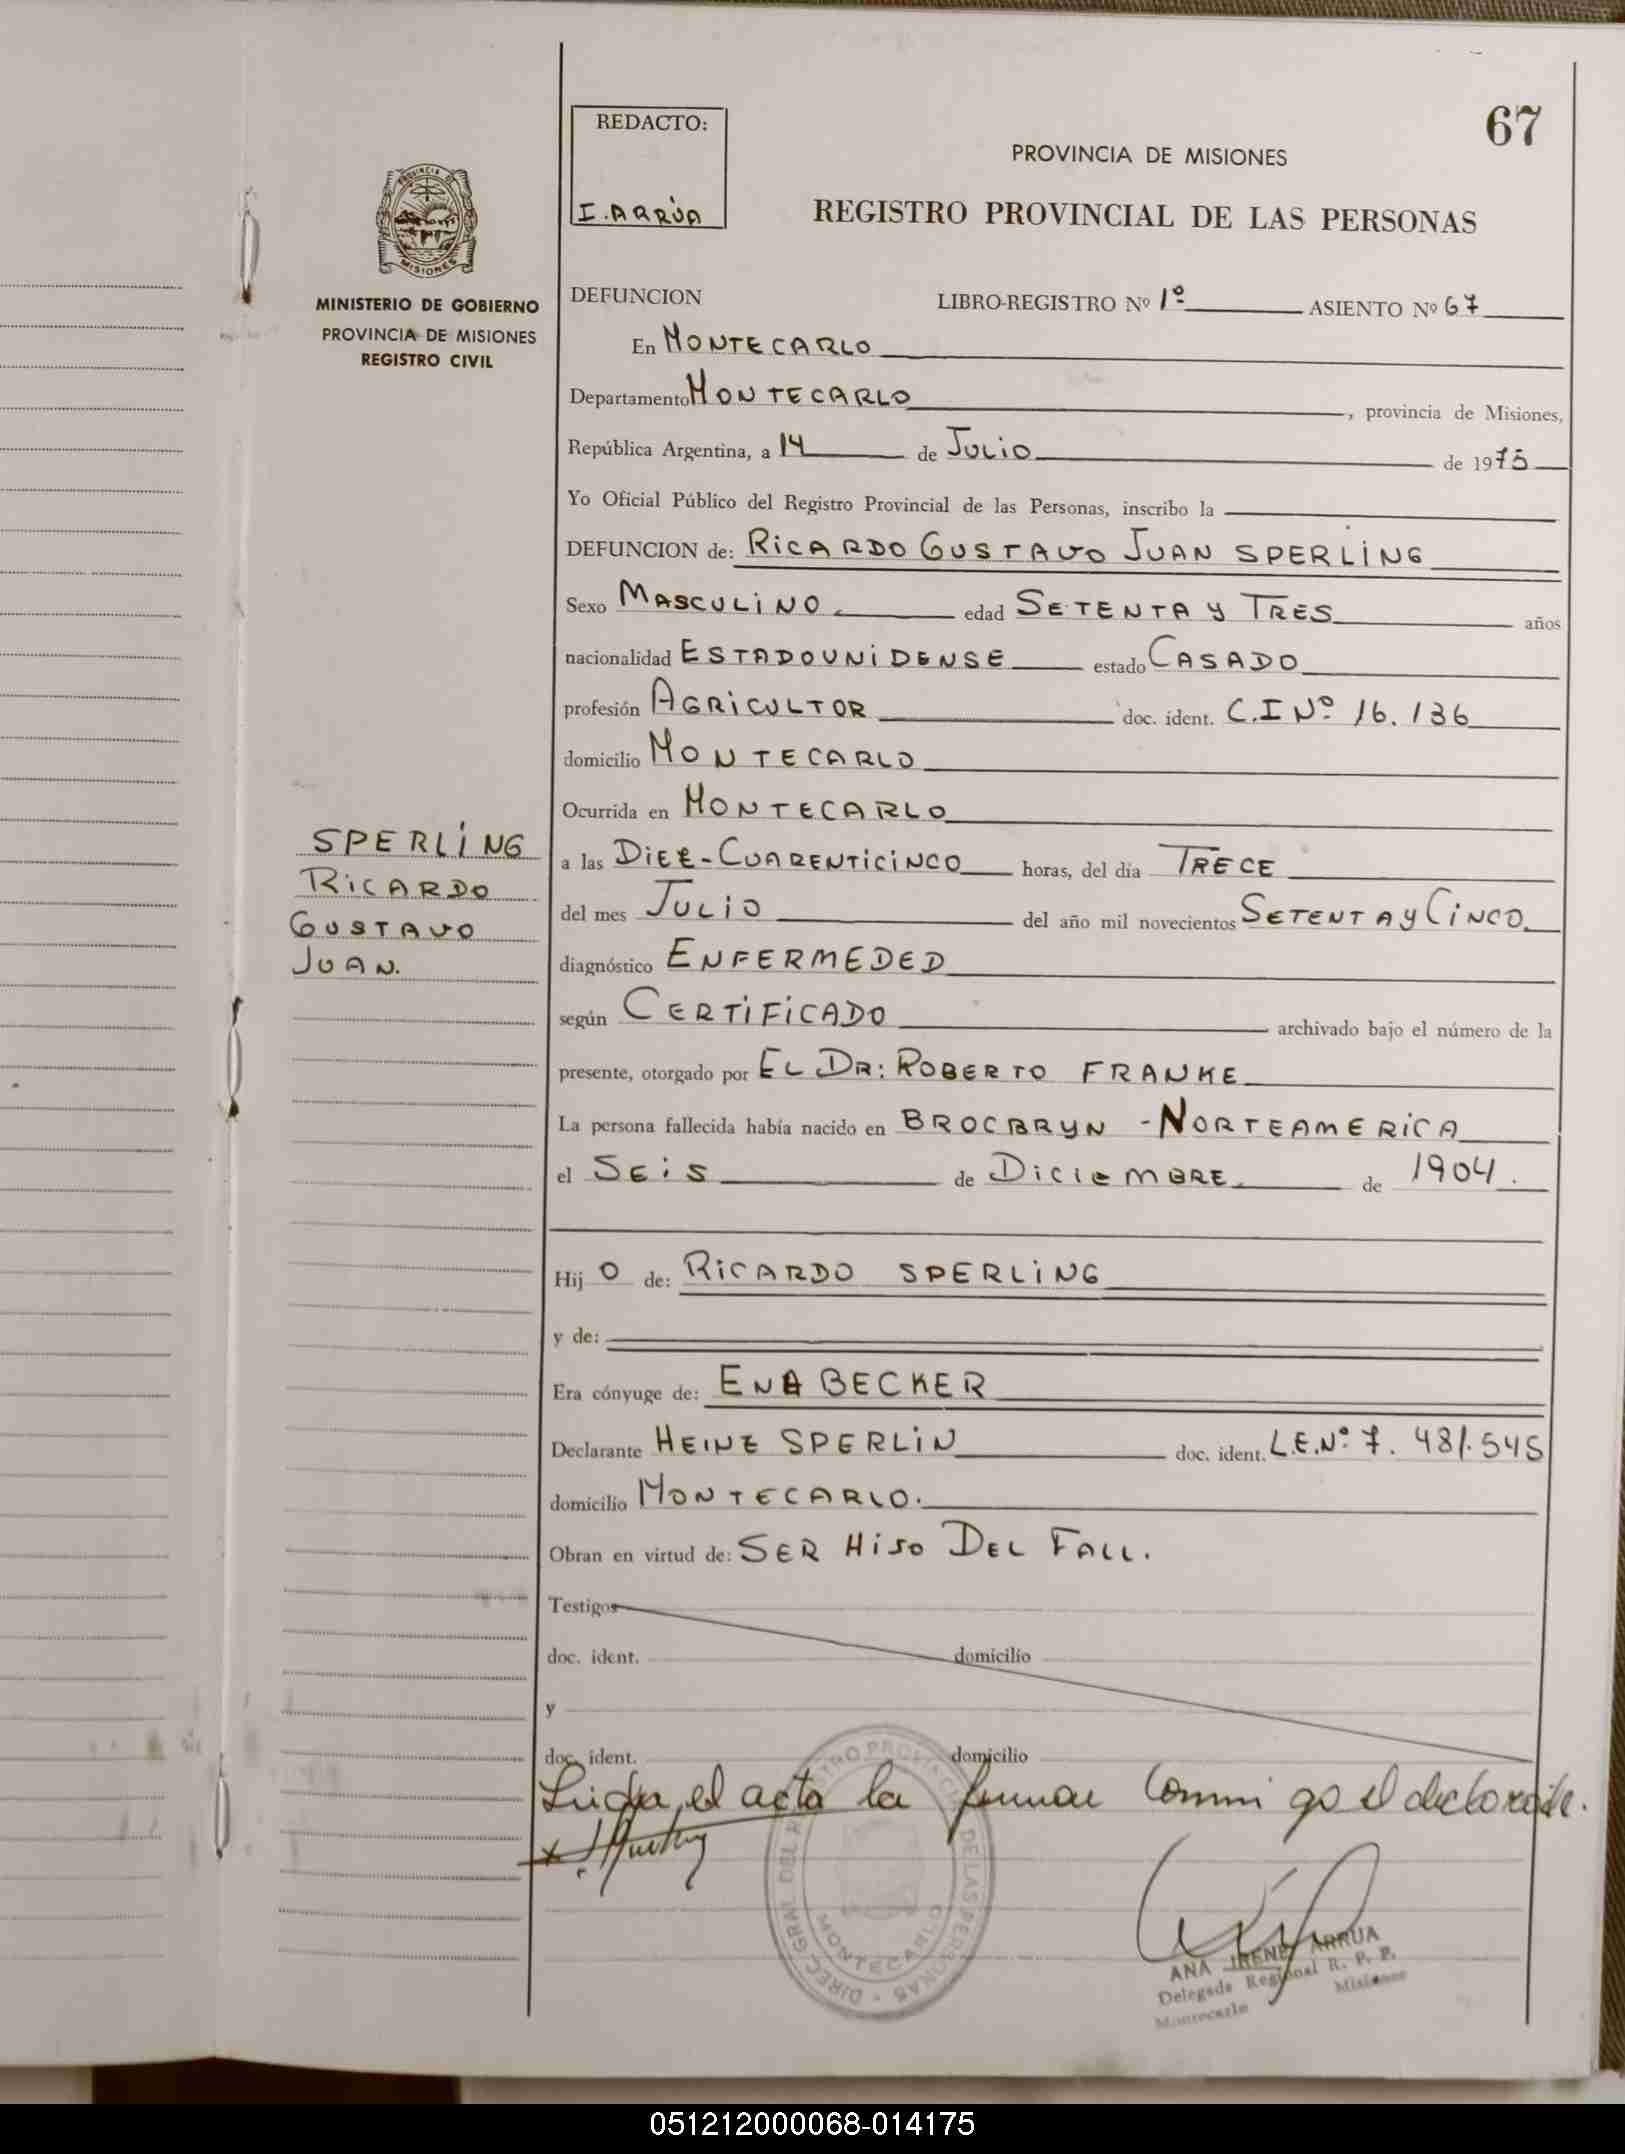 67
REDACTO:
I. ARRÚA
PROVINCIA DE MISIONES
REGISTRO PROVINCIAL DE LAS PERSONAS
PROVINCIA DE
MISIONES
MINISTERIO DE GOBIERNO
PROVINCIA DE MISIONES
REGISTRO CIVIL
DEFUNCION LIBRO-REGISTRO Nº 1º ASIENTO Nº 67
En MONTECARLO
Departamento MONTECARLO, provincia de Misiones,
República Argentina, a 14 de JULIO de 1975
Yo Oficial Público del Registro Provincial de las Personas, inscribo la
DEFUNCION de: RICARDO GUSTAVO JUAN SPERLING
Sexo MASCULINO. edad SETENTA Y TRES años
nacionalidad ESTADOUNIDENSE estado CASADO
profesión AGRICULTOR doc. ident. C.I Nº 16.136
domicilio MONTECARLO
Ocurrida en MONTECARLO
SPERLING
RICARDO
GUSTAVO
JUAN.
a las DIEZ-CUARENTICINCO horas, del día TRECE
del mes JULIO del año mil novecientos SETENTA Y CINCO.
diagnóstico ENFERMEDED
según CERTIFICADO archivado bajo el número de la
presente, otorgado por EL DR: ROBERTO FRANKE
La persona fallecida había nacido en BROCBRYN - NORTEAMERICA
el SEIS de DICIEMBRE de 1904.
Hij O de: RICARDO SPERLING
y de:
Era cónyuge de: ENA BECKER
Declarante HEINZ SPERLIN doc. ident. L.E.Nº 7.481.545
domicilio MONTECARLO.
Obran en virtud de: SER HIJO DEL FALL.
Testigos
doc. ident. domicilio
y
doc. ident. domicilio
el acta la conmigo el
DIREC. GRAL. DEL REGISTRO PROVINCIAL DE LAS PERSONAS
MONTECARLO
ANA IRENE ARRUA
Delegada Regional R. P. P.
Montecarlo Misiones
051212000068-014175